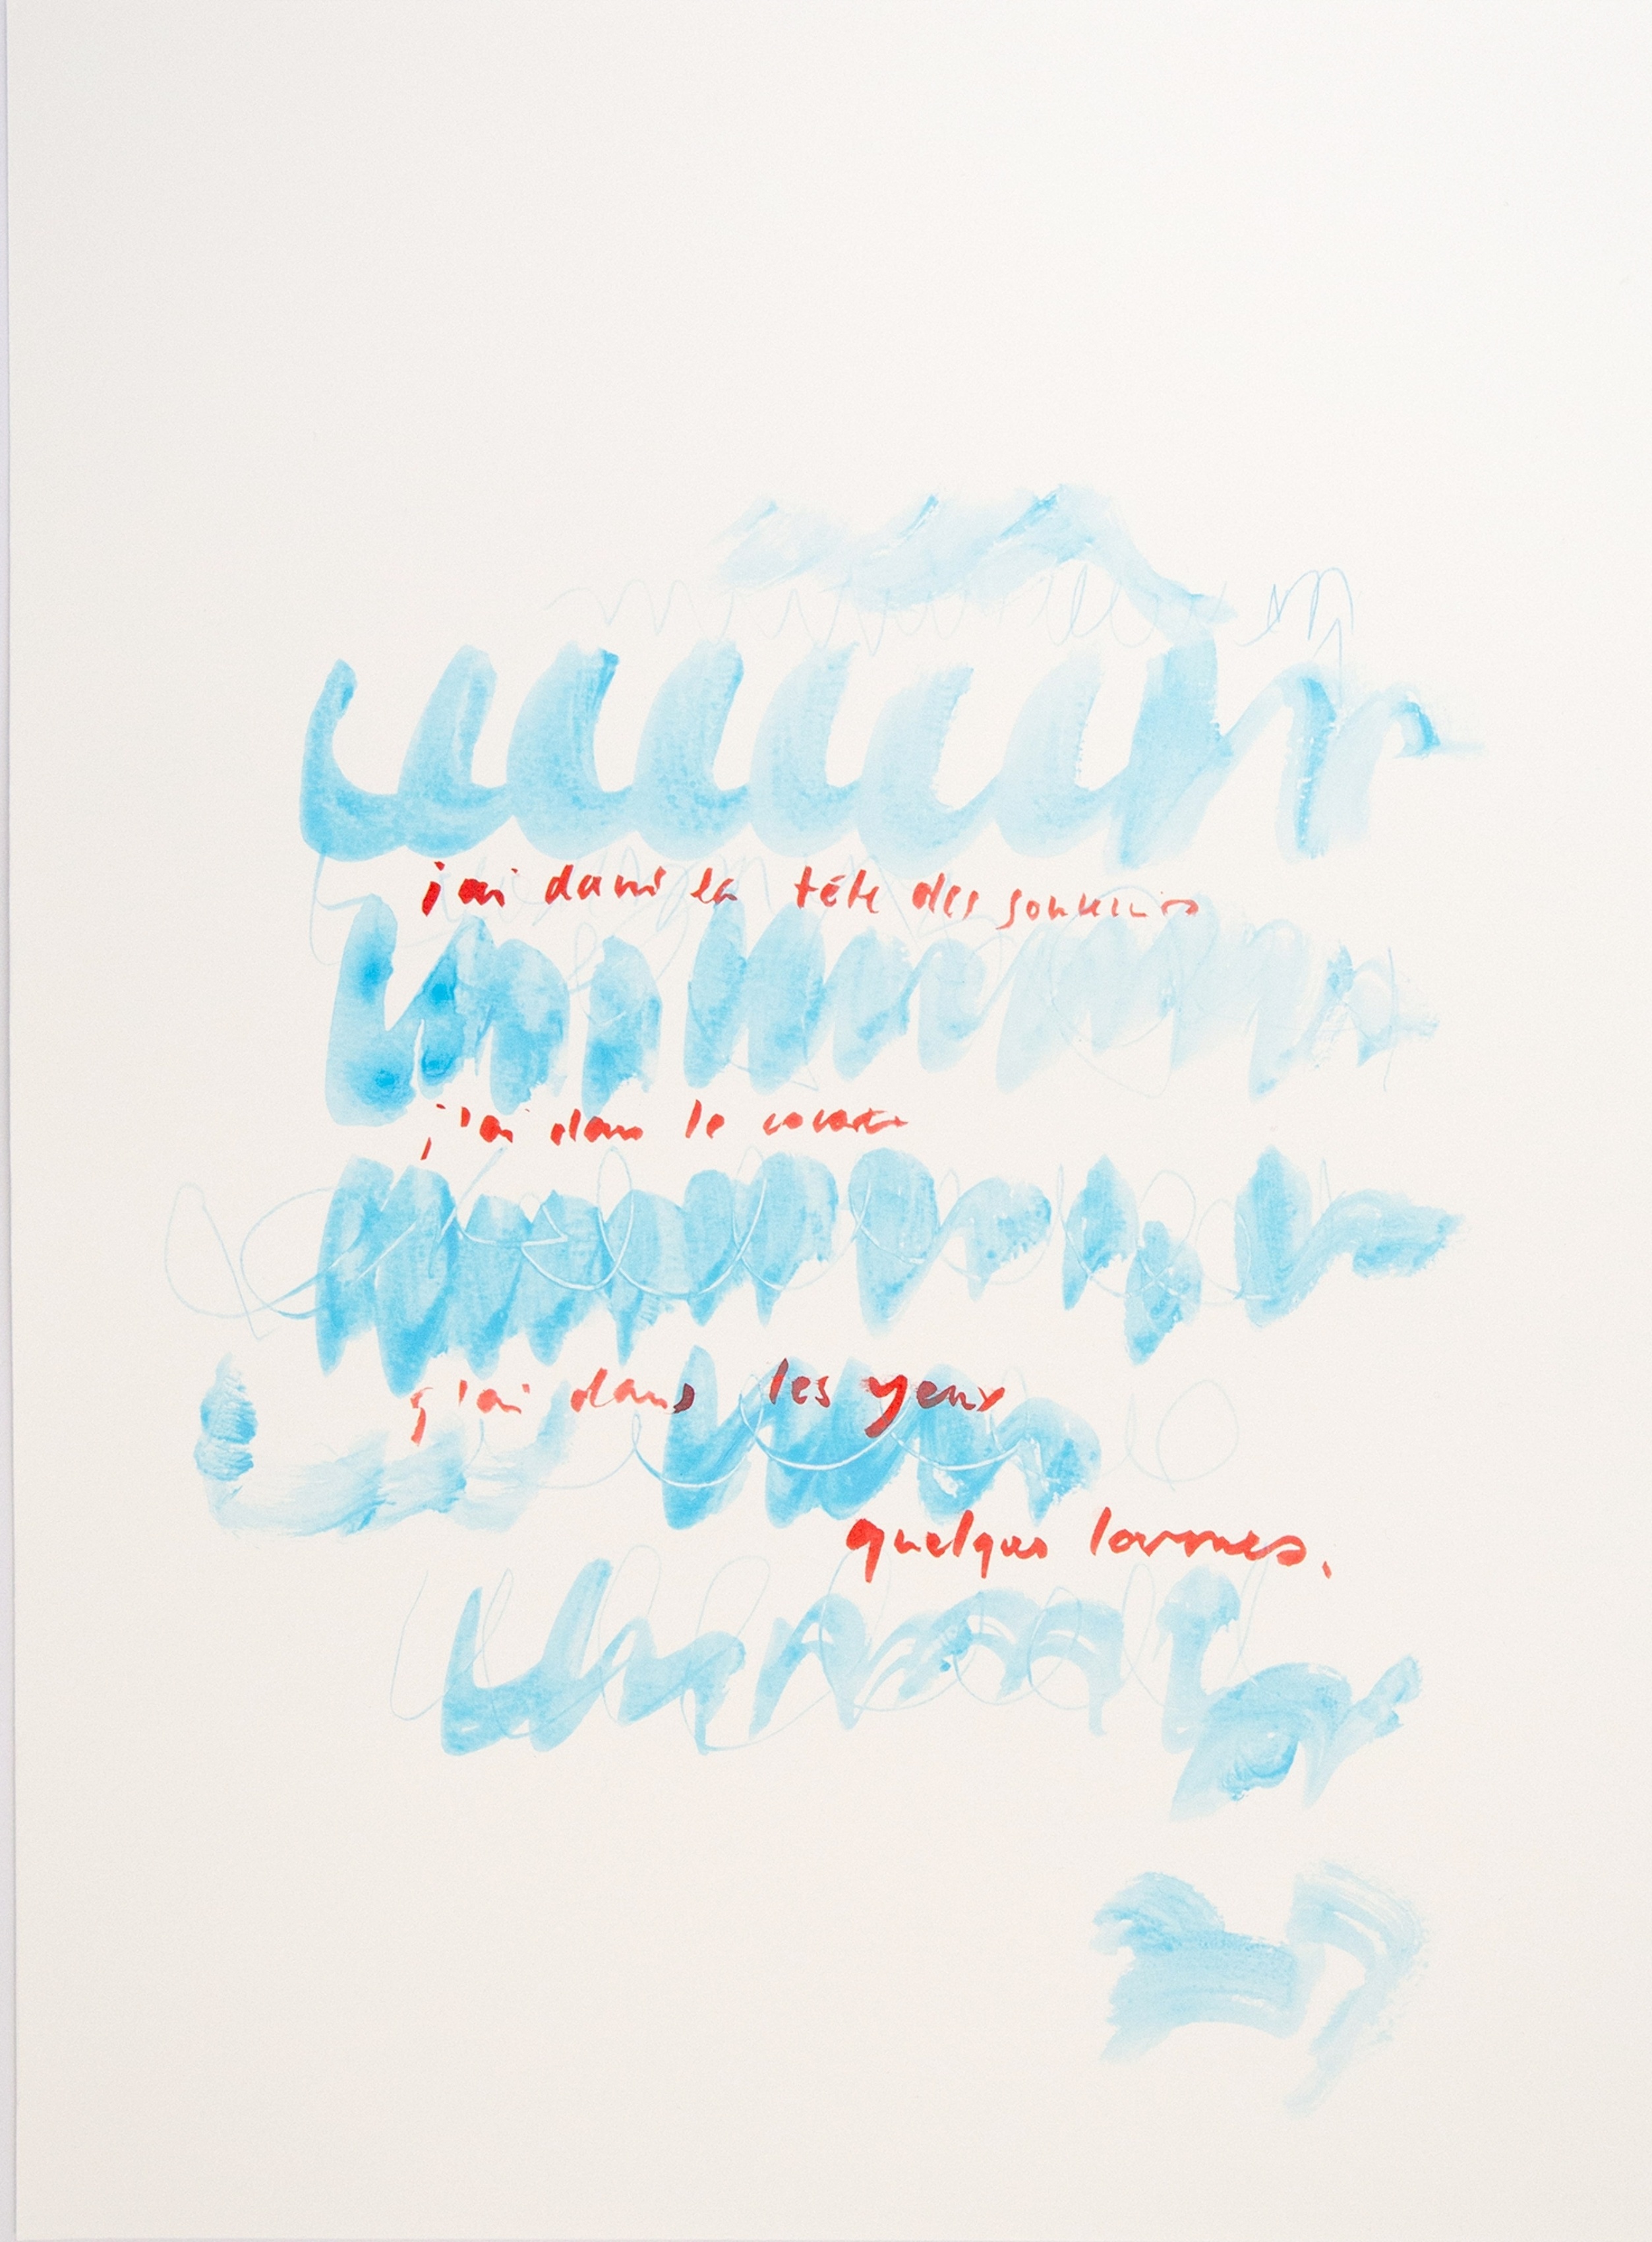 j'ai dans la tête des souvenirs
j'ai dans le
j'ai dans les yeux
quelques larmes.